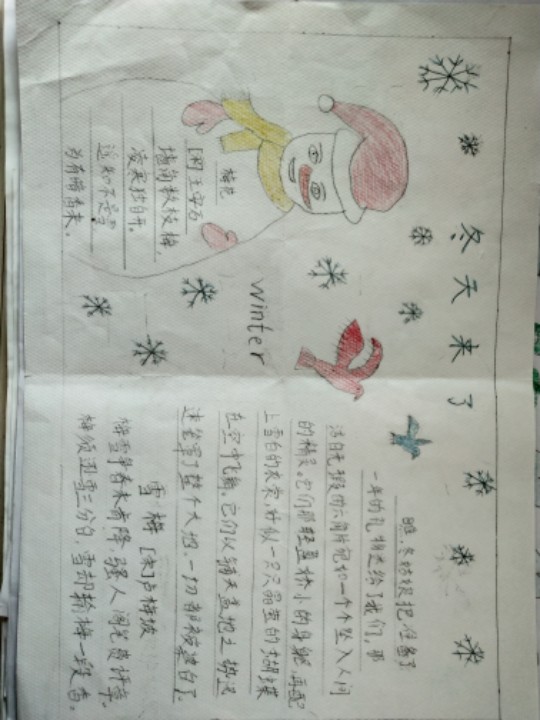 冬天来了
winter
梅花
[宋]王安石
墙角数枝梅，
凌寒独自开。
遥知不是雪
为有暗香来。
瞧，冬姑娘把准备了
一年的礼物送给了我们，那
洁白无瑕的六角片宛如一个个坠入人间
的精灵。它们那轻盈娇小的身躯，再配
上雪白的衣裳，好似一只只晶莹的蝴蝶
在空中飞舞。它们以铺天盖地之势迅
速笼罩了整个大地，一切都被染白了。
雪梅 [宋]卢梅坡
梅雪争春未肯降，骚人阁笔费评章。
梅须逊雪三分白，雪却输梅一段香。